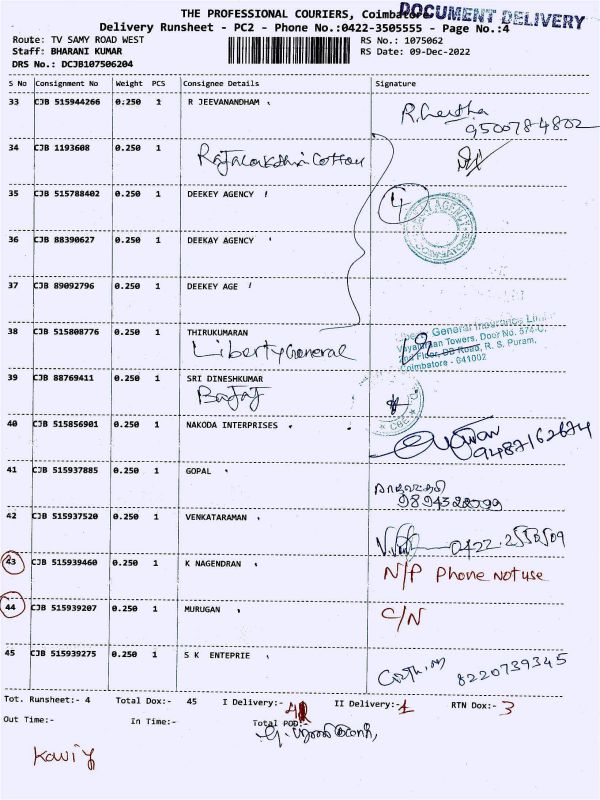 THE PROFESSIONAL COURIERS, Coimbatore
DOCUMENT DELIVERY
Delivery Runsheet - PC2 - Phone No.:0422-3505555 - Page No.:4
Route: TV SAMY ROAD WEST RS No.: 1075062
Staff: BHARANI KUMAR RS Date: 09-Dec-2022
DRS No.: DCJB107506204
S No Consignment No Weight PCS Consignee Details Signature
33 CJB 515944266 0.250 1 R JEEVANANDHAM
9500784802
34 CJB 1193608 0.250 1 Rajalakshmi Cotton
35 CJB 515788402 0.250 1 DEEKEY AGENCY 4
36 CJB 88390627 0.250 1 DEEKAY AGENCY
37 CJB 89092796 0.250 1 DEEKEY AGE
38 CJB 515808776 0.250 1 THIRUKUMARAN
Liberty General
General Insurance
Towers, Door No. 574-C,
2nd Floor, DB Road, R. S. Puram,
Coimbatore - 641002
39 CJB 88769411 0.250 1 SRI DINESHKUMAR
Bajaj
40 CJB 515856901 0.250 1 NAKODA INTERPRISES
9487162674
41 CJB 515937885 0.250 1 GOPAL
42 CJB 515937520 0.250 1 VENKATARAMAN
43 CJB 515939460 0.250 1 K NAGENDRAN N/P Phone not use
44 CJB 515939207 0.250 1 MURUGAN C/N
45 CJB 515939275 0.250 1 S K ENTEPRIE 8220739345
Tot. Runsheet:- 4 Total Dox:- 45 I Delivery:- II Delivery:-1 RTN Dox:- 3
Out Time:- In Time:- Total POD:-